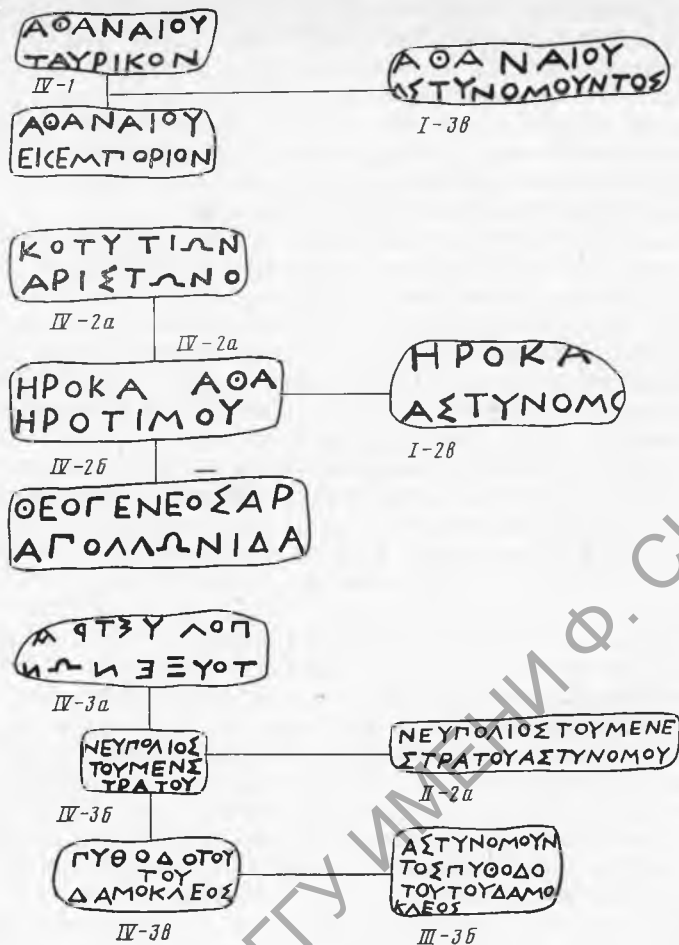 ΑΘΑΝΑΙΟΥ
ΤΑΥΡΙΚΟΝ
IV-1
ΑΘΑΝΑΙΟΥ
ΑΣΤΥΝΟΜΟΥΝΤΟΣ
I-3в
ΑΘΑΝΑΙΟΥ
ΕΙϹΕΜΠΟΡΙΟΝ
ΚΟΤΥΤΙΩΝ
ΑΡΙΣΤΩΝΟ
IV-2а
IV-2а
ΗΡΟΚΑ ΑΘΑ
ΗΡΟΤΙΜΟΥ
IV-2б
ΗΡΟΚΑ
ΑΣΤΥΝΟΜΟ
I-2в
ΘΕΟΓΕΝΕΟΣΑΡ
ΑΠΟΛΛΩΝΙΔΑ
Α ΡΤΣΥ ΛΟΠ
ΝΩΝΕΞΥΟΤ
IV-3а
ΝΕΥΠΟΛΙΟΣ
ΤΟΥΜΕΝΣ
ΤΡΑΤΟΥ
IV-3б
ΝΕΥΠΟΛΙΟΣΤΟΥΜΕΝΕ
ΣΤΡΑΤΟΥΑΣΤΥΝΟΜΟΥ
II-2а
ΠΥΘΟΔΟΤΟΥ
ΤΟΥ
ΔΑΜΟΚΛΕΟΣ
IV-3в
ΑΣΤΥΝΟΜΟΥΝ
ΤΟΣΠΥΘΟΔΟ
ΤΟΥΤΟΥΔΑΜΟ
ΚΛΕΟΣ
III-3б
ГГУ ИМЕНИ Ф.